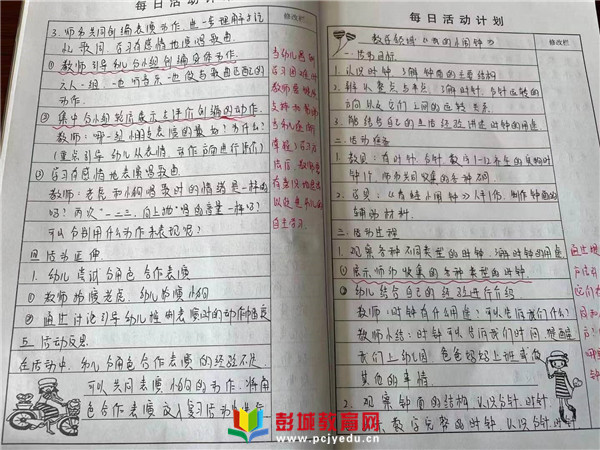 每日活动计划
修改栏
3. 师幼共同创编表演动作,进一步理解并记
忆歌词,学习有感情地演唱歌曲。
① 教师引导幼儿分小组创编身体动作。
六人一组,
动作。
② 集中各小组轮流展示并评价创编的动作。
教师:哪一组小朋友表演的最好?为什么?
(重点引导幼儿从表情、动作方面进行评价)
③ 学习有感情地表演唱歌曲
教师:老虎和小狗唱歌时的情绪是一样的
吗?两次“一二三,向上爬”唱的音量一样吗?
可以分别用什么动作来表现呢?
四 活动延伸
1. 幼儿尝试分角色合作表演
① 教师扮演老虎,幼儿扮演小狗
② 通过讨论引导幼儿
五、活动反思
在活动中,幼儿分角色合作表演的经验不足
可以共同表演小狗的动作,将角
色合作表演放入复习活动中进行
当幼儿遇到
学习困难时
教师要给予
支持和
自主学习
每日活动计划
修改栏
数学领域《我的小闹钟》
一 活动目标
1. 认识时钟,了解钟面的主要结构
2. 能认整点与半点,了解时针、分针运转的
方向以及它们之间的运转关系。
3. 能结合自己的生活经验讲述时钟的用途
二 活动准备
1. 教具:有时针、分针、数字1-12
钟1个,师幼共同收集的各种钟
2. 学具:《看时钟》人手1份,制作钟面的
辅助材料。
三 活动过程
1. 观察各种不同类型的时钟,了解时钟的用途
① 展示师幼收集的各种类型的时钟
② 幼儿结合自己的经验进行介绍
教师:时钟有什么用途?可以告诉我们什么?
教师小结:时钟可以告诉我们时间,提醒
我们上幼儿园,爸爸妈妈上班或做
其他的事情
2. 观察钟面的结构,认识分针、时针
数字完整的时钟,认识分针
彭城教育网
www.pcjyedu.cn